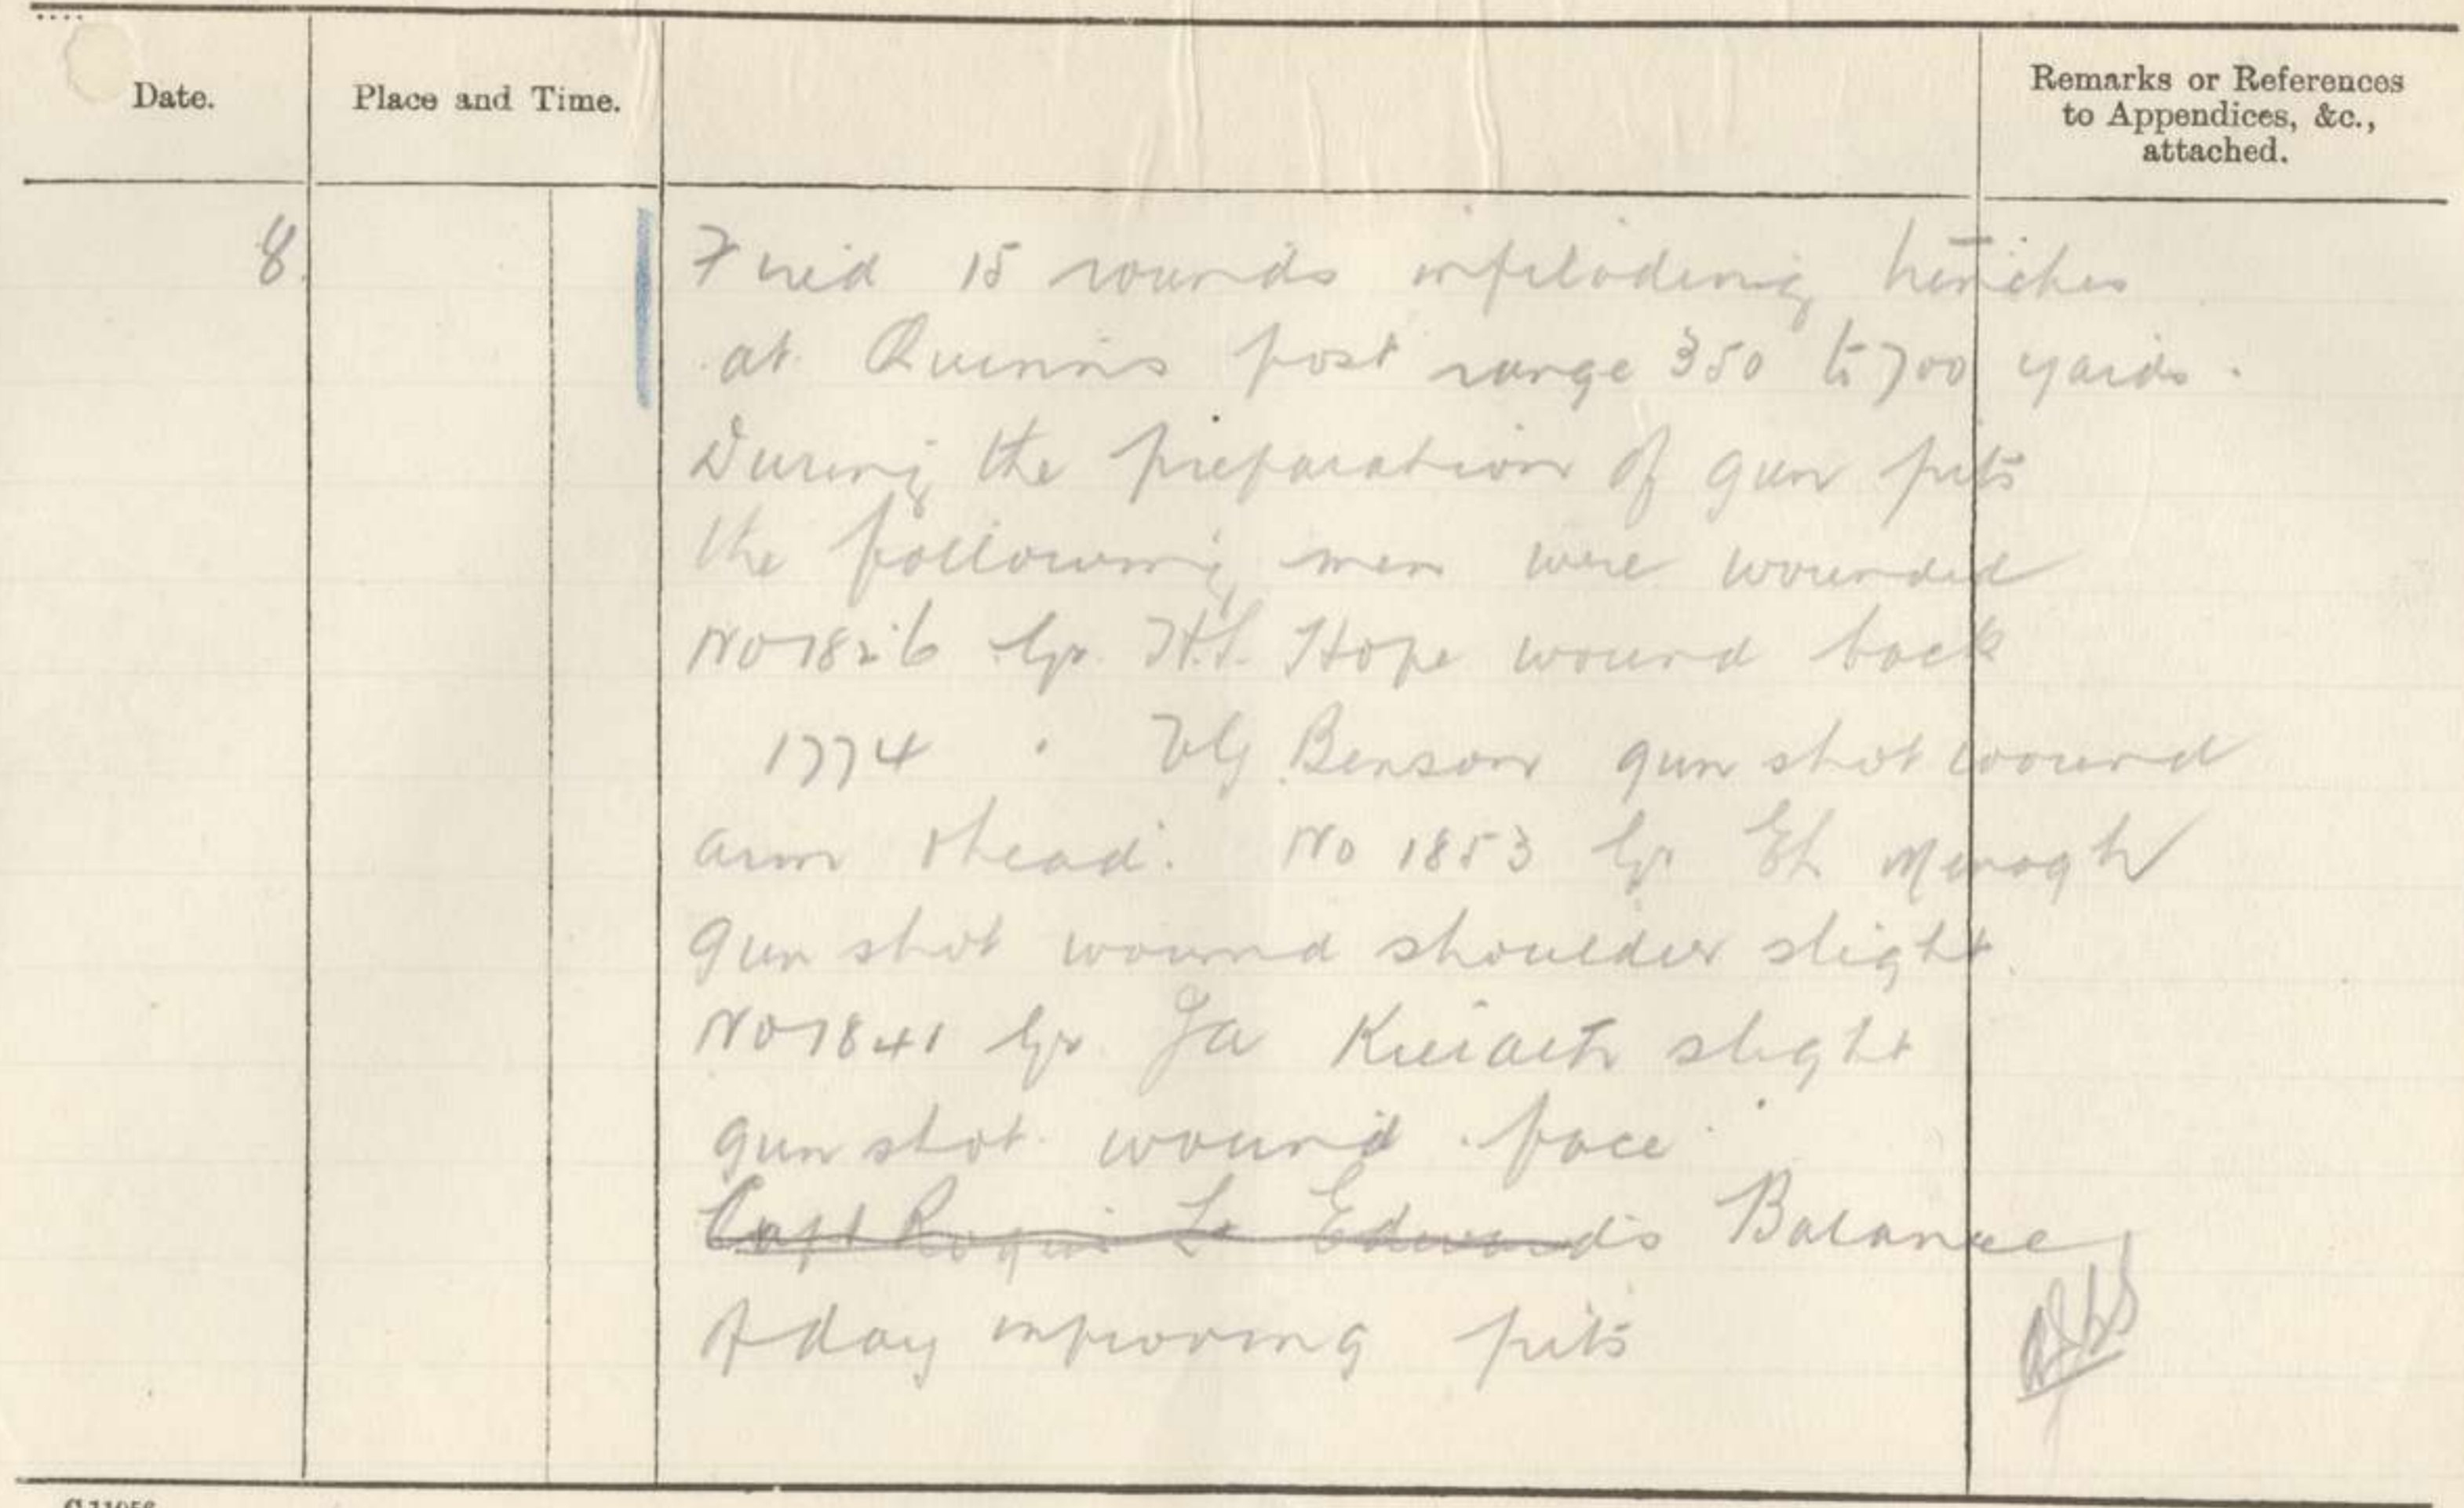 Date.
Place and Time.
Remarks or References
to Appendices, &c.,
attached.
8.
Fired 15 rounds infilading trenches
at Quinns post range 350 to 700 yards.
During the preparation of gun pits
the following men were wounded
No 1826 Gr. H.S. Hope wound back
1774 " Benson gun shot wound
arm & head. No 1853 Gr Menagh
gun shot wound shoulder slight.
No 1841 Gr. Ja slight
gun shot wound face
Capt Lt Edwards Balance
of day improving pits